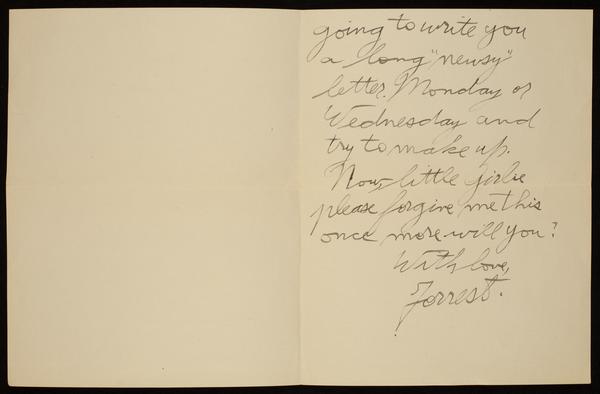 going to write you
a long "newsy"
letter. Monday or
Wednesday and
try to make up.
Now, little girlie
please forgive me this
once more will you?
With love,
Forrest.